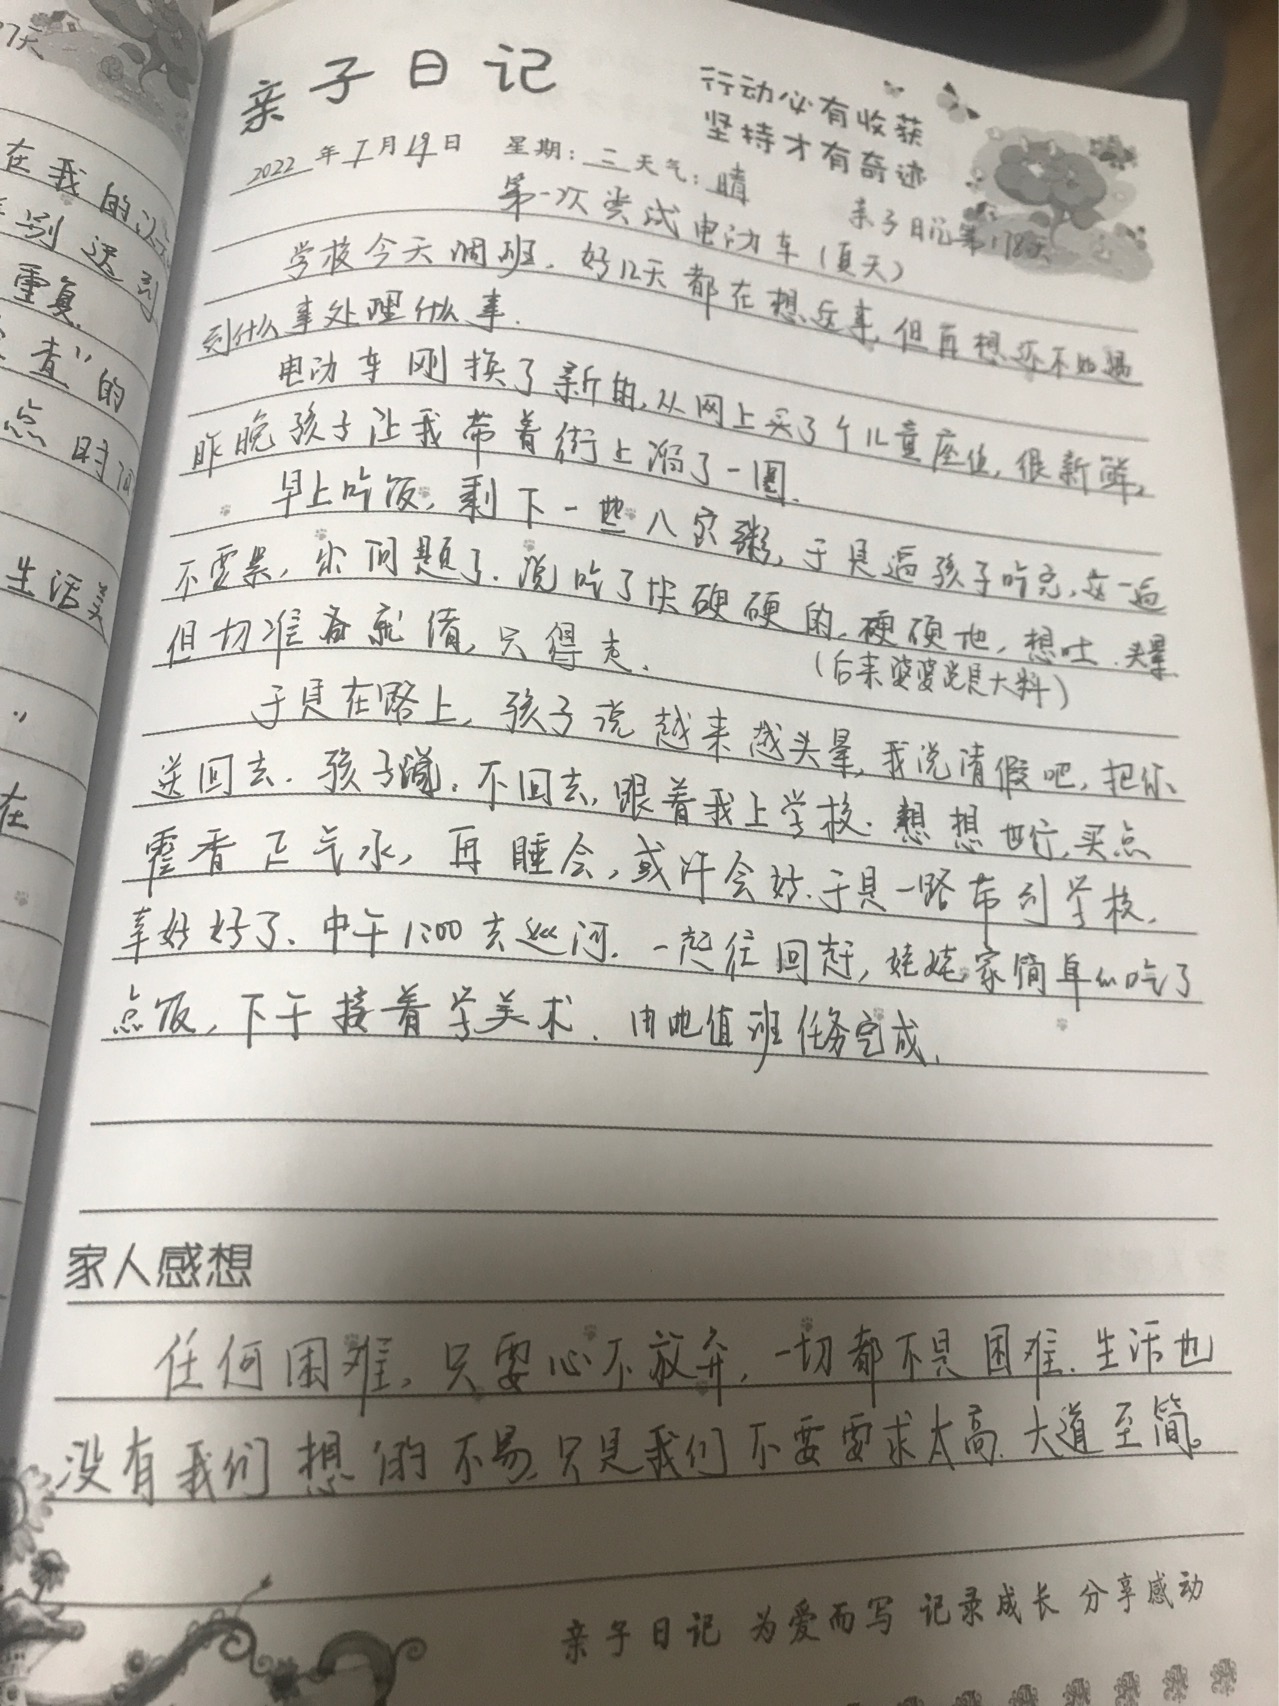 7天
在我的
别迟到
重复
查”的
点时间
生活美
在
亲子日记
行动必有收获
坚持才有奇迹
2022年 月19日 星期:三 天气:晴
亲子日记第178天
第一次尝试电动车(夏天)
学校今天调班,好几天都在想这事,但再想还不如遇
到什么事处理什么事.
电动车刚换了新的,从网上买了个儿童座位,很新鲜,
昨晚孩子让我带着街上溜了一圈.
早上吃饭,剩下一些八宝粥,于是逼孩子吃完,这一逼
不要紧,出问题了.说吃了块硬硬的,硬硬地,想吐.头晕
(后来婆婆说是大料)
但切准备就绪,只得走.
于是在路上,孩子说越来越头晕,我说请假吧,把你
送回去.孩子 ,不回去,跟着我上学校.想想也行,买点
霍香正气水,再睡会,或许会好.于是一路带到学校,
幸好好了.中午1:00去巡河.一起往回赶,姥姥家简单的吃了
点饭,下午接着学美术. 值班任务完成.
家人感想
任何困难,只要心不放弃,一切都不是困难.生活也
没有我们想的不易,只是我们不要要求太高.大道至简。
亲子日记 为爱而写 记录成长 分享感动